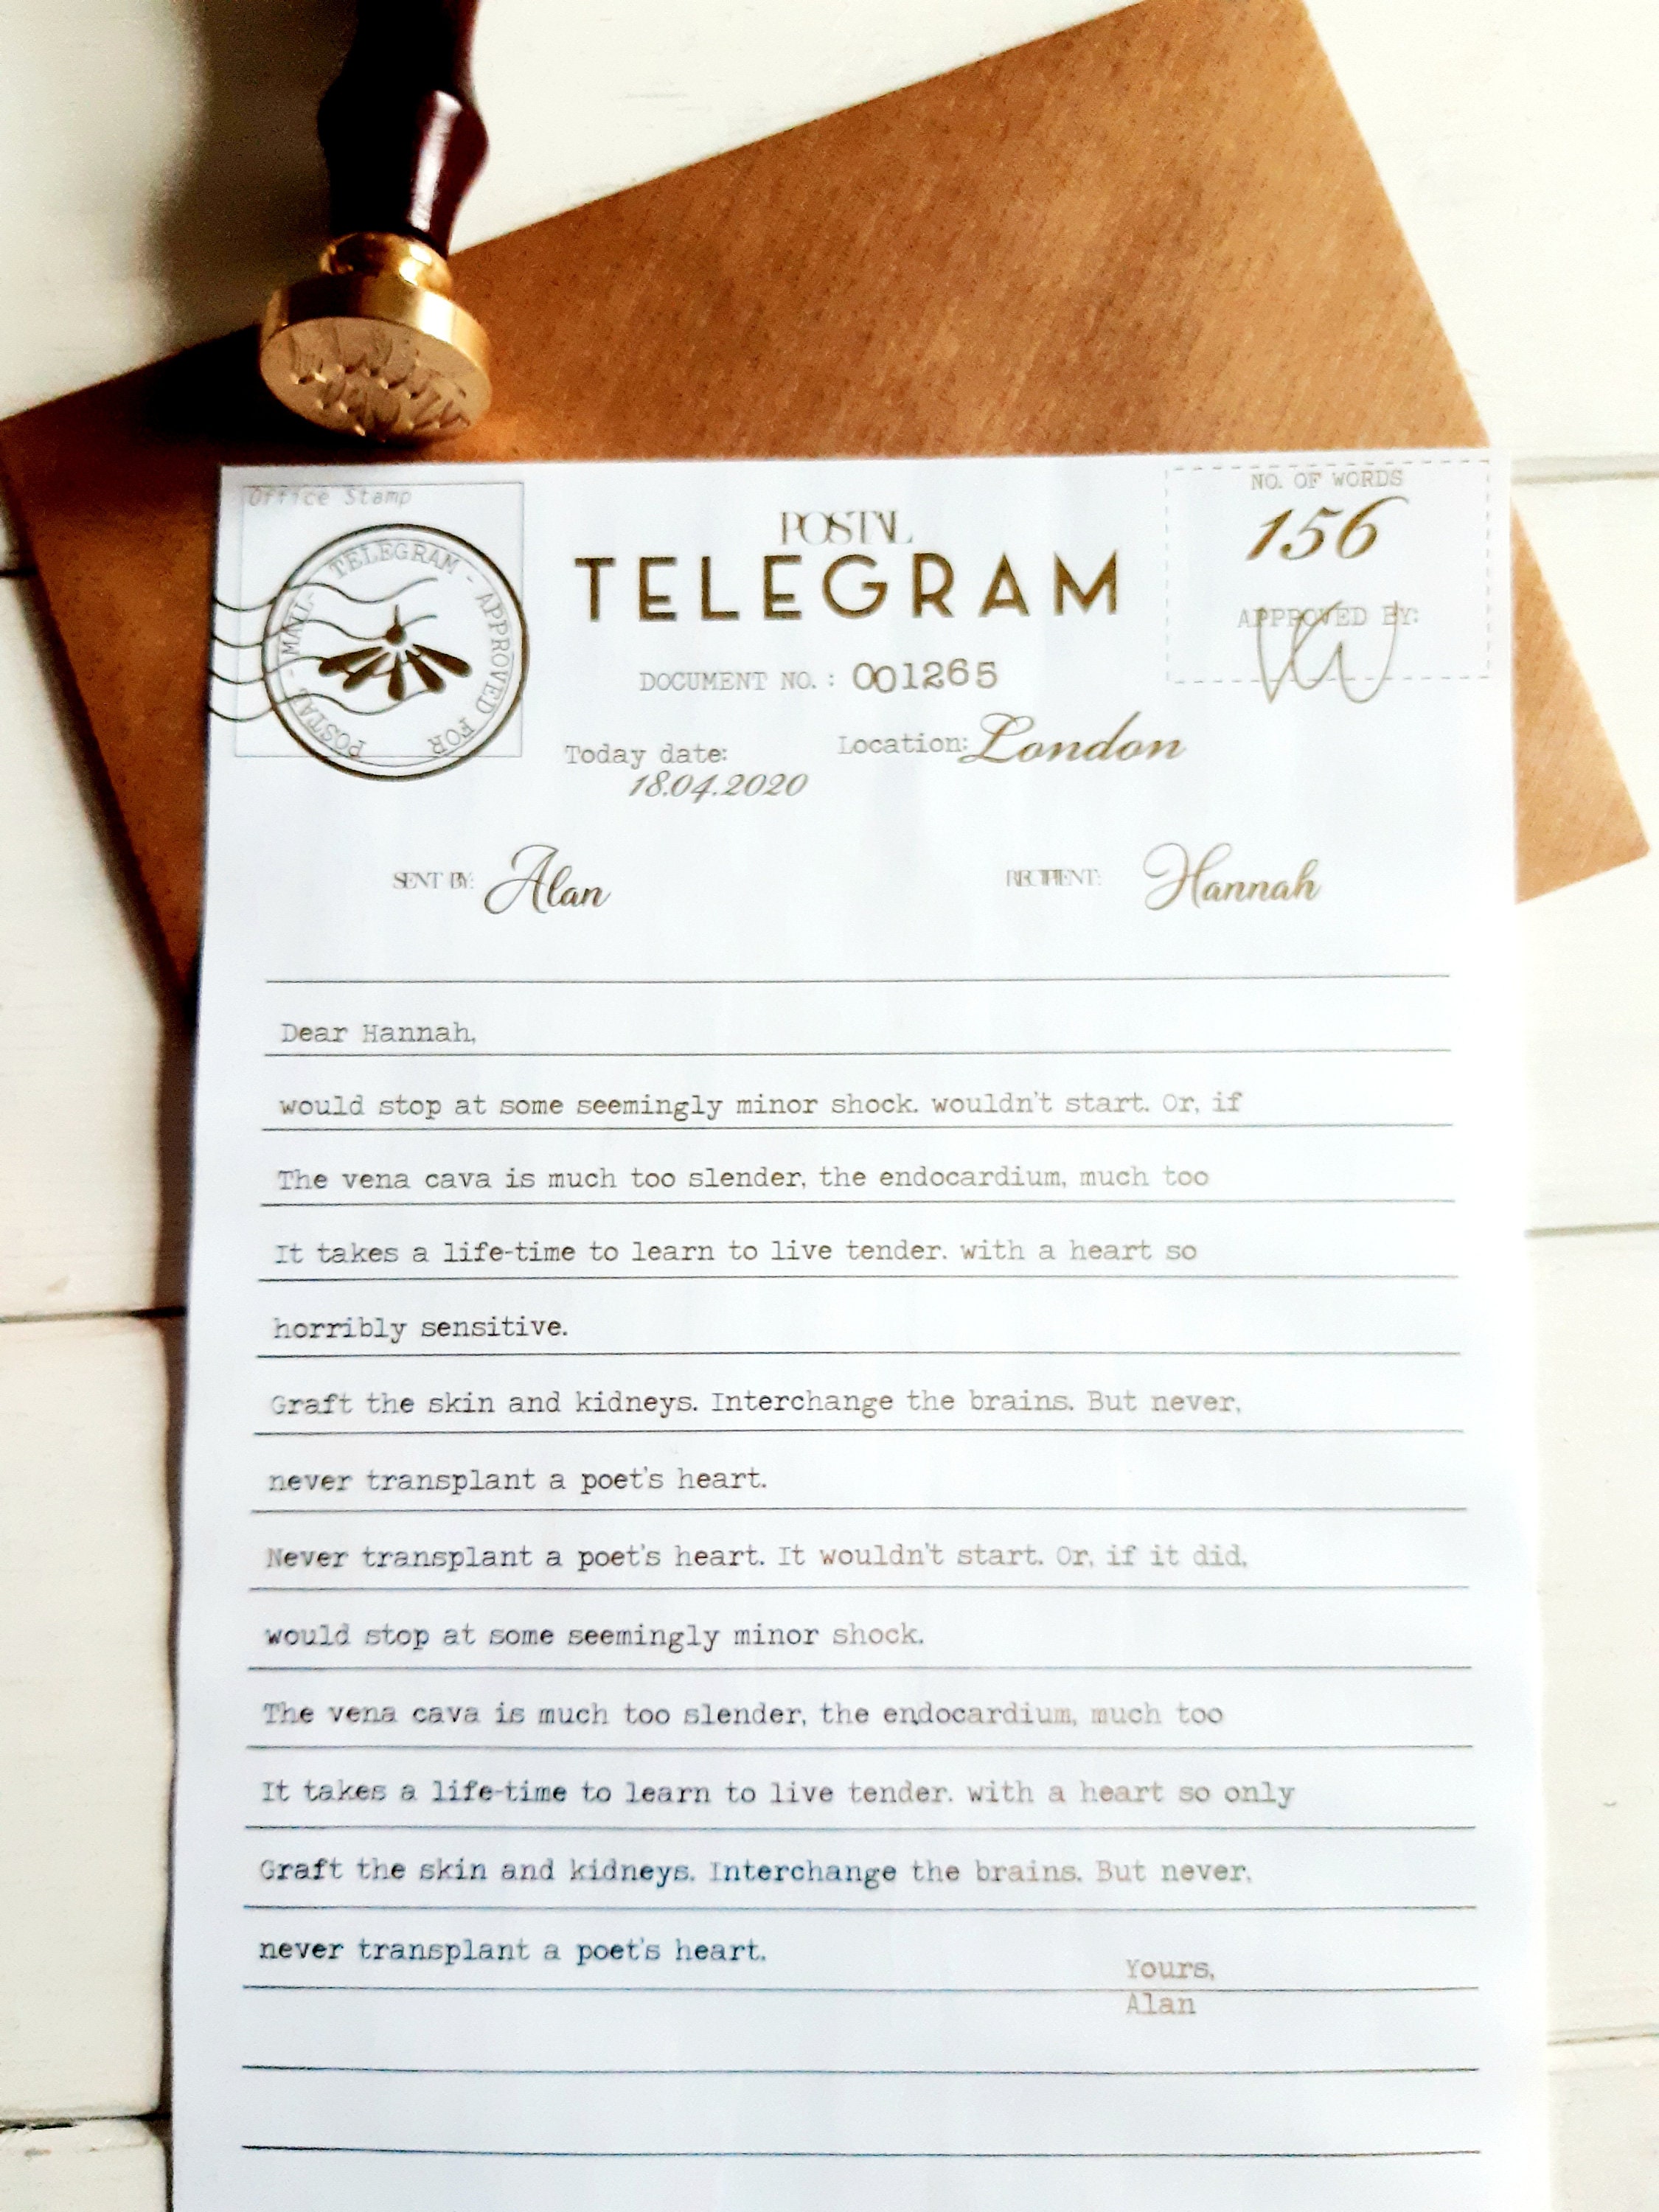 Office Stamp
POSTAL - MAIL - TELEGRAM - APPROVED FOR
POSTAL
TELEGRAM
NO. OF WORDS
156
APPROVED BY:
DOCUMENT NO. : 001265
Today date:
18.04.2020
Location: London
SENT BY: Alan
RECIPIENT: Hannah
Dear Hannah,
would stop at some seemingly minor shock. wouldn't start. Or, if
The vena cava is much too slender, the endocardium, much too
It takes a life-time to learn to live tender. with a heart so
horribly sensitive.
Graft the skin and kidneys. Interchange the brains. But never,
never transplant a poet's heart.
Never transplant a poet's heart. It wouldn't start. Or, if it did,
would stop at some seemingly minor shock.
The vena cava is much too slender, the endocardium, much too
It takes a life-time to learn to live tender. with a heart so only
Graft the skin and kidneys. Interchange the brains. But never,
never transplant a poet's heart.
Yours,
Alan